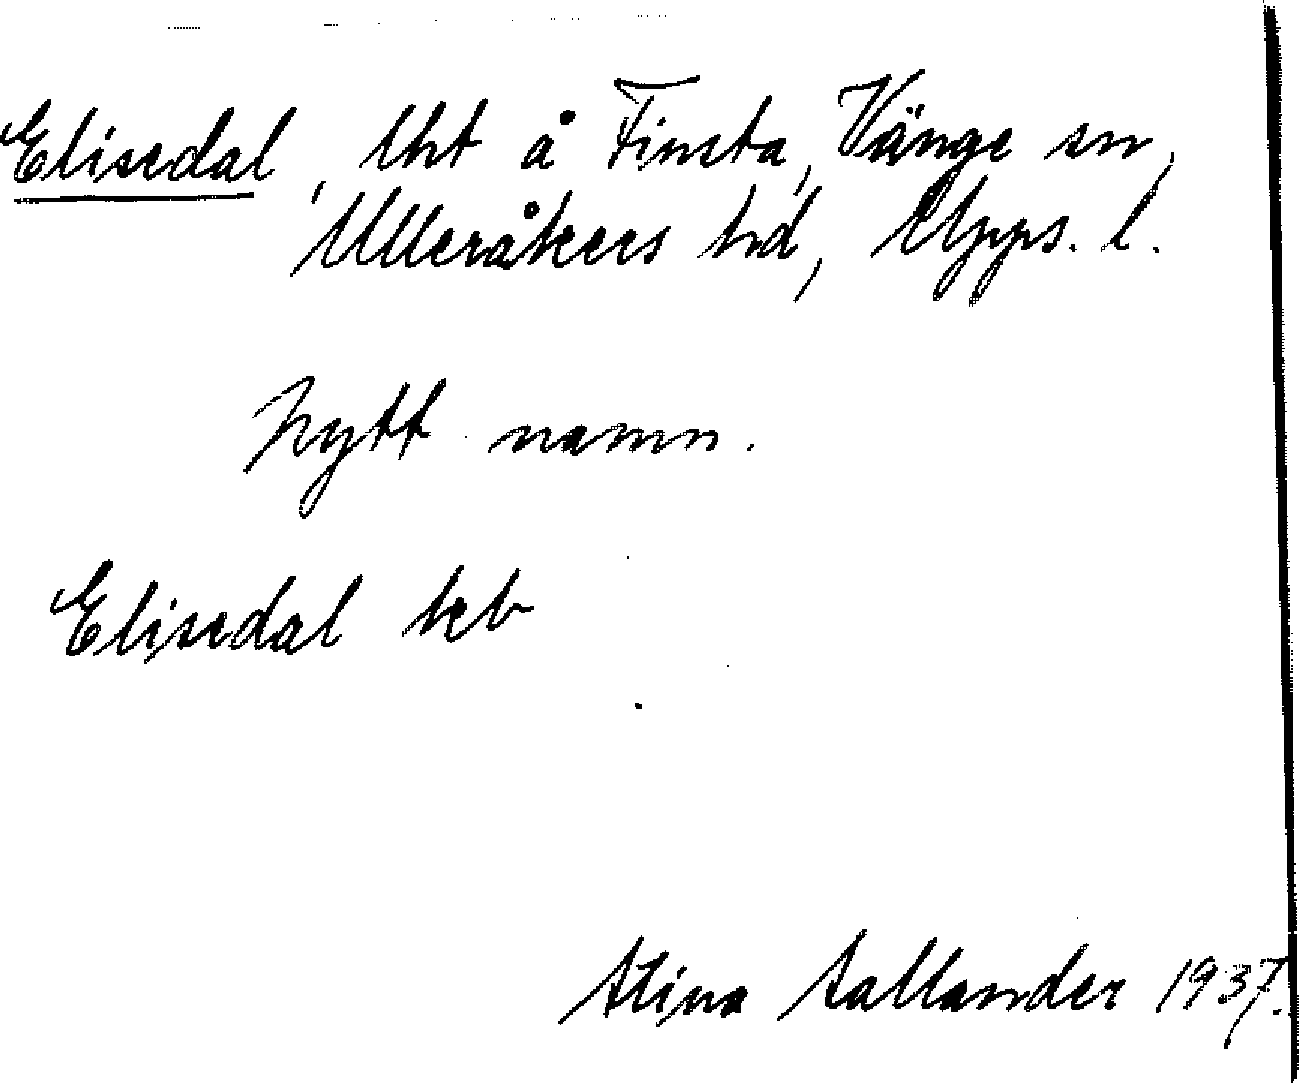 Elisedal, lht å Finsta, Vänge sn,
Ulleråkers hd, Upps. l.
Nytt namn.
Elisedal keb
Stina Sallander 1937.